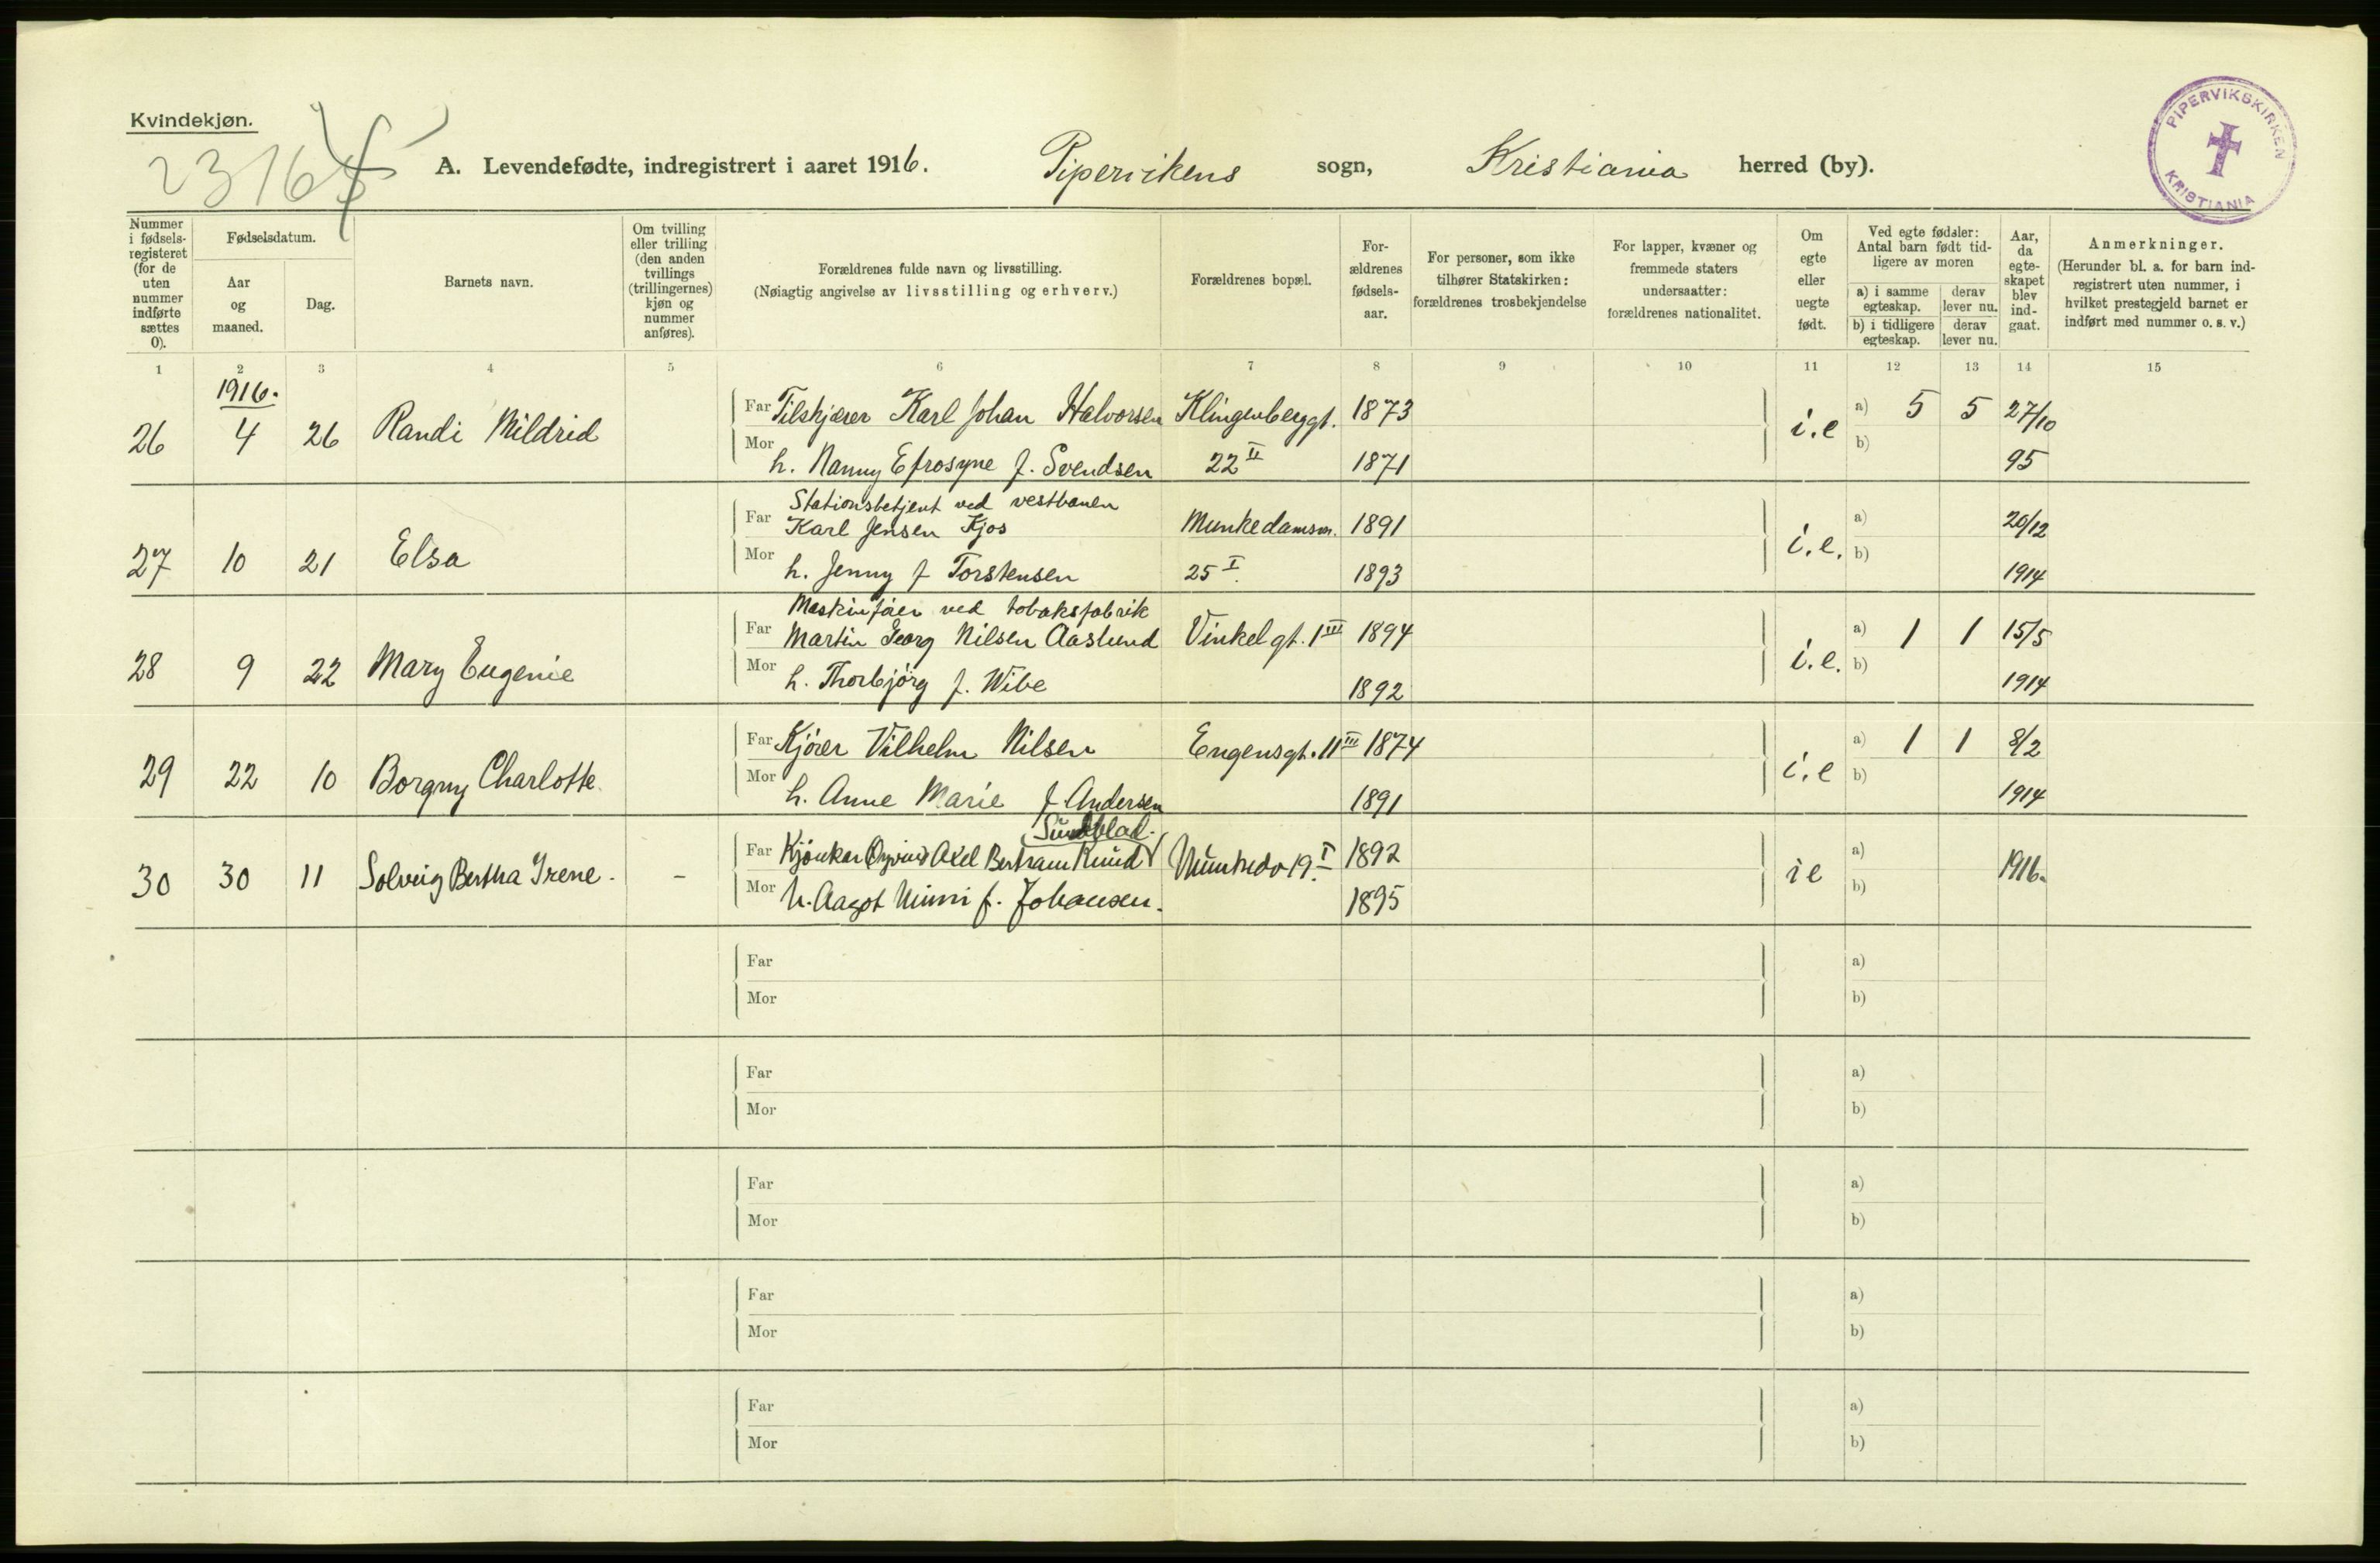 Kvindekjøn.
A. Levendefødte, indregistrert i aaret 1916. Pipervikens sogn, Kristiania herred (by).
PIPERVIKSKIRKEN KRISTIANIA
Nummer i fødsels-registeret (for de uten nummer indførte sættes 0).
Fødselsdatum.
Aar og maaned.
Dag.
Barnets navn.
Om tvilling eller trilling (den anden tvillings (trillingernes) kjøn og nummer anføres).
Forældrenes fulde navn og livsstilling.
(Nøiagtig angivelse av livsstilling og erhverv.)
Forældrenes bopæl.
For-ældrenes fødsels-aar.
For personer, som ikke tilhører Statskirken: forældrenes trosbekjendelse
For lapper, kvæner og fremmede staters undersaatter: forældrenes nationalitet.
Om egte eller uegte født.
Ved egte fødsler: Antal barn født tid-ligere av moren
a) i samme egteskap. derav lever nu.
b) i tidligere egteskap. derav lever nu.
Aar, da egte-skapet blev ind-gaat.
Anmerkninger.
(Herunder bl. a. for barn ind-registrert uten nummer, i hvilket prestegjeld barnet er indført med nummer o. s. v.)
1 2 3 4 5 6 7 8 9 10 11 12 13 14 15
1916.
26 4 26 Randi Mildrid
Far Tilskjærer Karl Johan Halvorsen Klingenberggt. 1873 i.e a) 5 5 27/10
Mor h. Nanny Efrosyne f. Svendsen 22 II 1871 b) 95
Stationsbetjent ved vestbanen
27 10 21 Elsa
Far Karl Jensen Kjos Munkedamsv. 1891 i.e. a) 20/12
Mor h. Jenny f Torstensen 25 I. 1893 b) 1914
Maskinfører ved tobaksfabrik
28 9 22 Mary Eugenie
Far Martin Georg Nilsen Aaslund Vinkelgt. 1 III 1894 i.e. a) 1 1 15/5
Mor h. Thorbjörg f. Wibe 1892 b) 1914
29 22 10 Borgny Charlotte.
Far Kjörer Vilhelm Nilsen Engensgt. 11 III 1874 i.e a) 1 1 8/2
Mor h. Anne Marie f. Andersen 1891 b) 1914
Sundblad.
30 30 11 Solveig Bertha Irene. -
Far Axel Bertram Knud 19 I 1892 ie a) 1916.
Mor h. Aagot Mimi f. Johansen. 1895 b)
Far a)
Mor b)
Far a)
Mor b)
Far a)
Mor b)
Far a)
Mor b)
Far a)
Mor b)